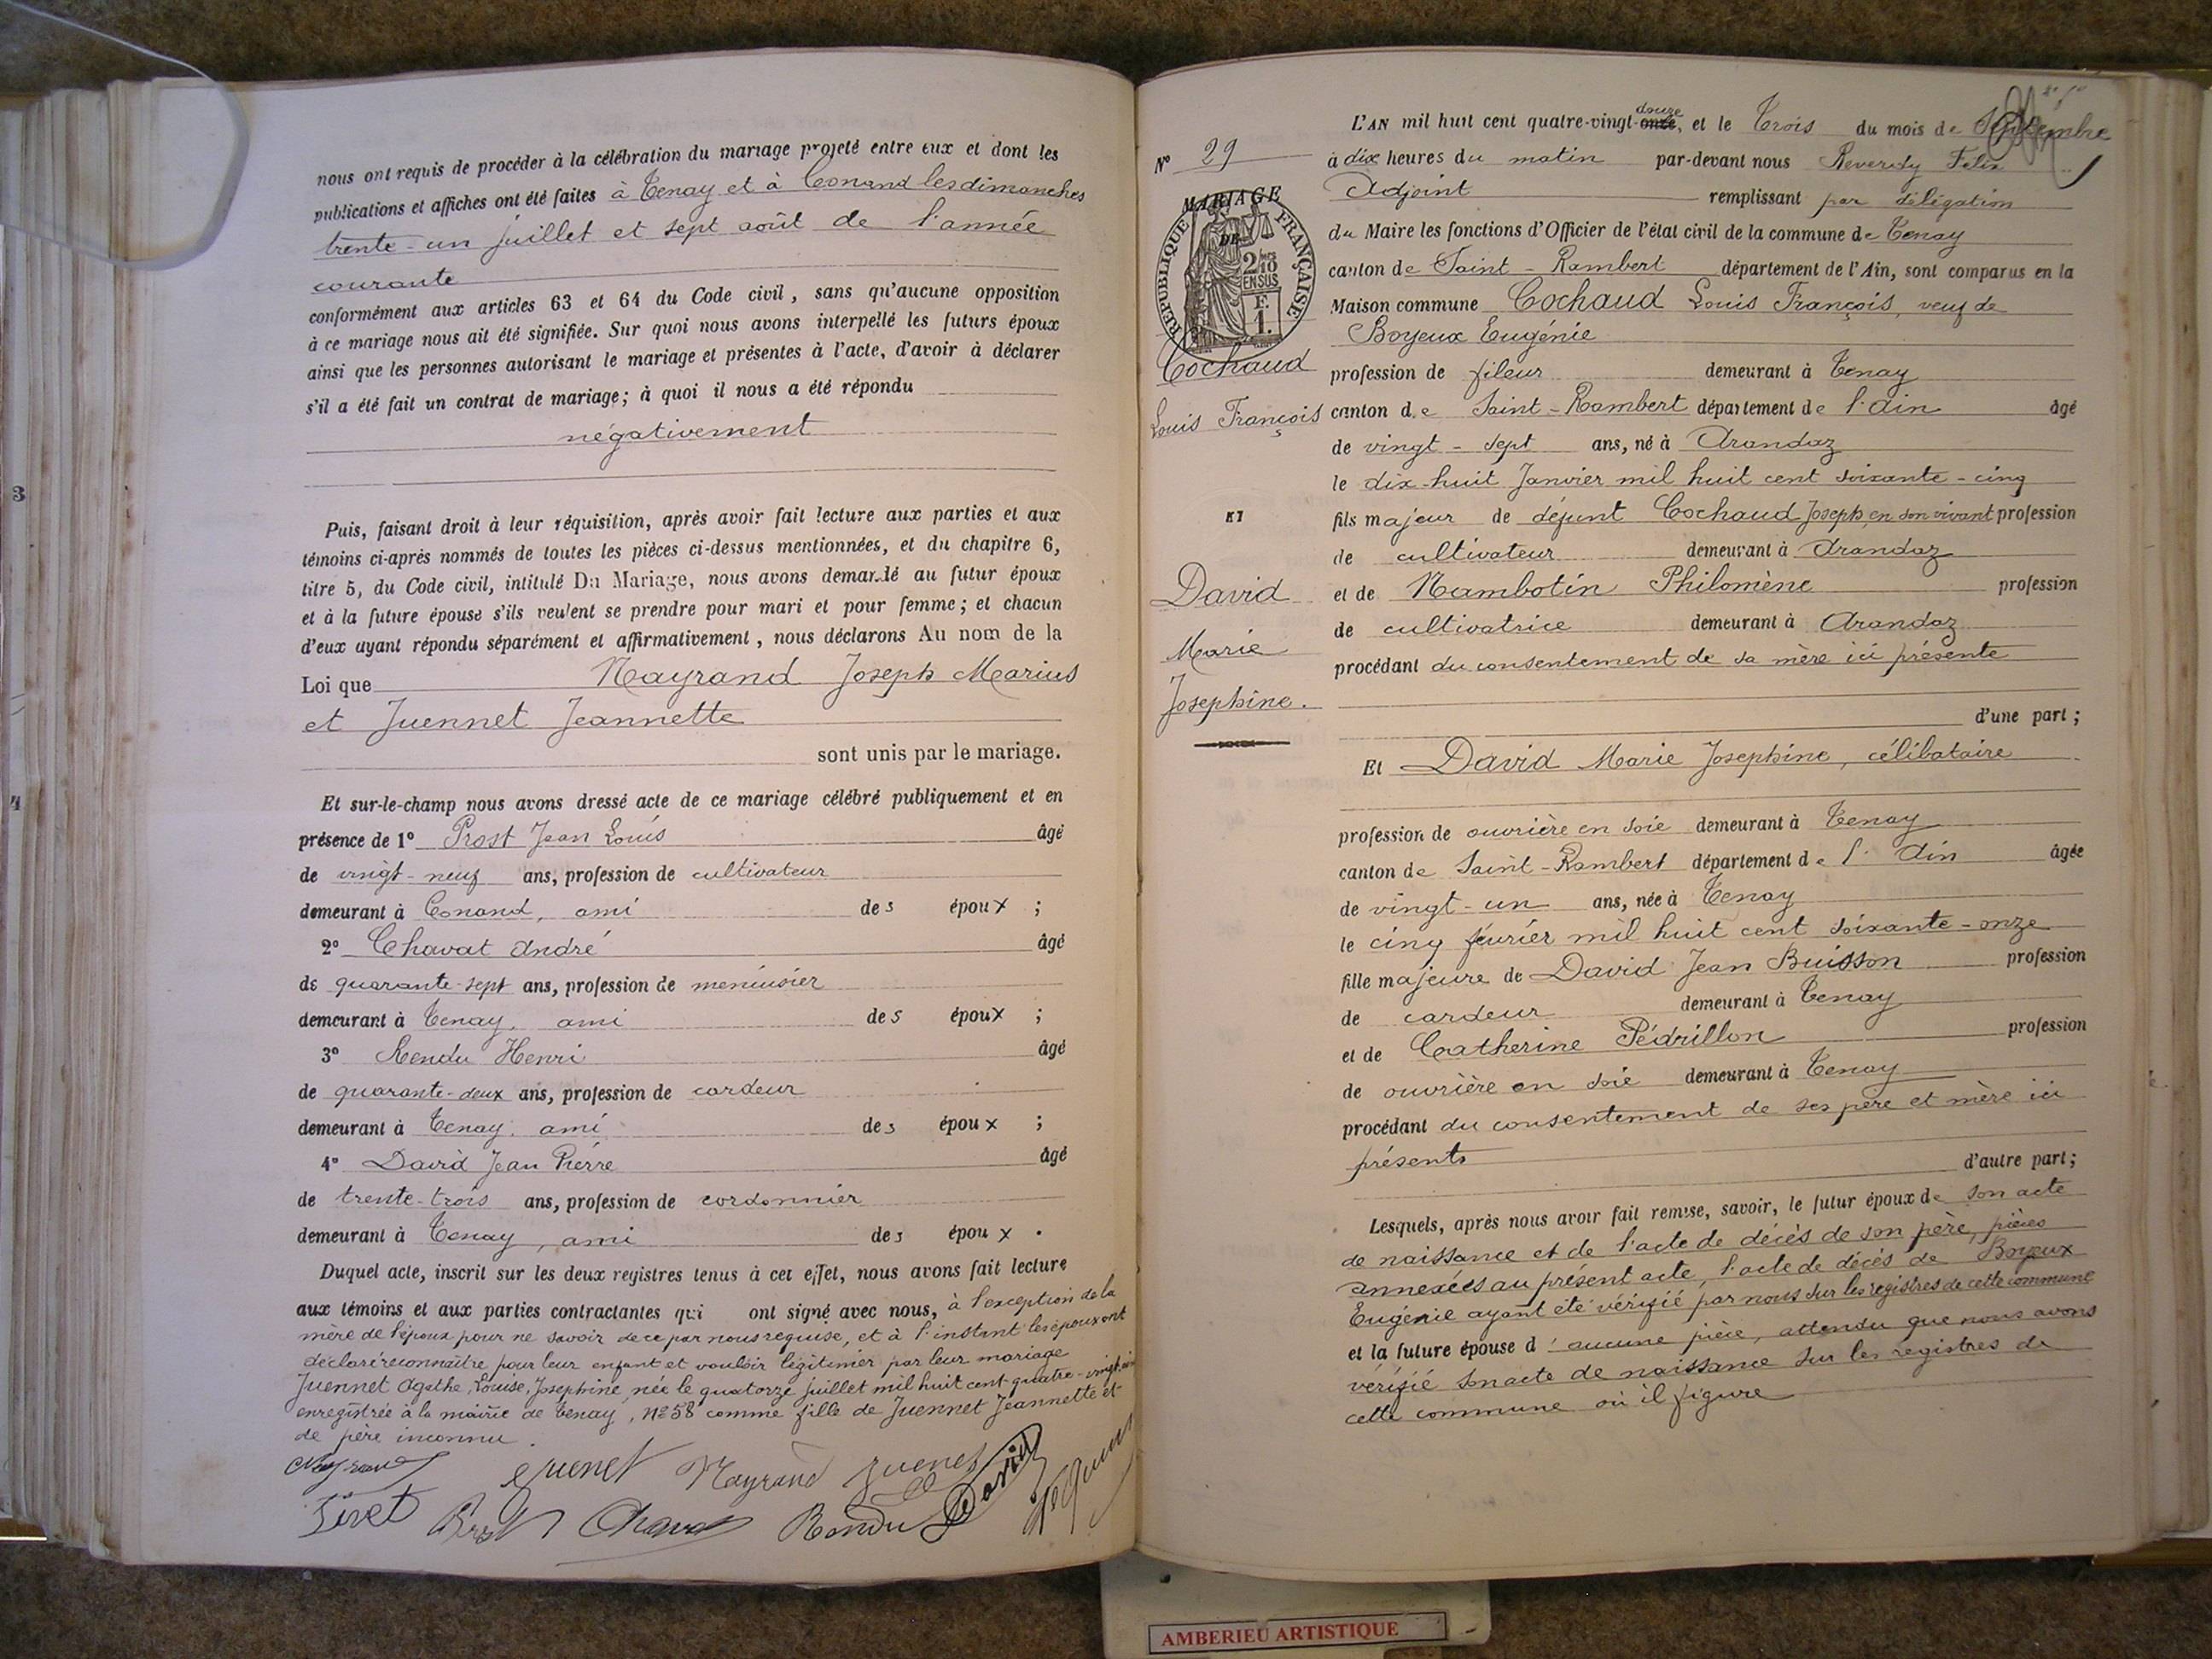 nous ont requis de procéder à la célébration du mariage projeté entre eux et dont les
publications et affiches ont été faites à Tenay et à Conand les dimanches
trente-un juillet et sept août de l'année
courante
conformément aux articles 63 et 64 du Code civil, sans qu'aucune opposition
à ce mariage nous ait été signifiée. Sur quoi nous avons interpellé les futurs époux
ainsi que les personnes autorisant le mariage et présentes à l'acte, d'avoir à déclarer
s'il a été fait un contrat de mariage; à quoi il nous a été répondu
négativement
Puis, faisant droit à leur réquisition, après avoir fait lecture aux parties et aux
témoins ci-après nommés de toutes les pièces ci-dessus mentionnées, et du chapitre 6,
titre 5, du Code civil, intitulé Du Mariage, nous avons demandé au futur époux
et à la future épouse s'ils veulent se prendre pour mari et pour femme; et chacun
d'eux ayant répondu séparément et affirmativement, nous déclarons Au nom de la
Loi que Mayrand Joseph Marius
et Juennet Jeannette
sont unis par le mariage.
Et sur-le-champ nous avons dressé acte de ce mariage célébré publiquement et en
présence de 1° Prost Jean Louis âgé
de vingt-neuf ans, profession de cultivateur
demeurant à Conand, ami des époux ;
2° Chavat André âgé
de quarante-sept ans, profession de menuisier
demeurant à Tenay, ami des époux ;
3° Rendu Henri âgé
de quarante-deux ans, profession de cardeur
demeurant à Tenay, ami des époux ;
4° David Jean Pierre âgé
de trente-trois ans, profession de cordonnier
demeurant à Tenay, ami des époux .
Duquel acte, inscrit sur les deux registres tenus à cet effet, nous avons fait lecture
aux témoins et aux parties contractantes qui ont signé avec nous, à l'exception de la
mère de l'époux pour ne savoir de ce par nous requise, et à l'instant les époux ont
déclaré reconnaître pour leur enfant et vouloir légitimer par leur mariage
Juennet Agathe, Louise, Josephine, née le quatorze juillet mil huit cent quatre-vingt
enregistrée à la mairie de Tenay, N° 58 comme fille de Juennet Jeannette et
de père inconnu.
Juenet Mayrand Juenet David
Livet Prost Chavat Rendu
L'AN mil huit cent quatre-vingt-onze, douze et le Trois du mois de Septembre
N° 29
à dix heures du matin par-devant nous Reverdy Felix
Adjoint remplissant par délégation
du Maire les fonctions d'Officier de l'état civil de la commune de Tenay
canton de Saint-Rambert département de l'Ain, sont comparus en la
Maison commune Cochaud Louis François, veuf de
Boyeux Eugénie
MARIAGE
RÉPUBLIQUE FRANÇAISE
DE
2/10
EN SUS
F.
1.
Cochaud
Louis François
ET
David
Marie
Josephine.
profession de fileur demeurant à Tenay
canton de Saint-Rambert département de l'Ain âgé
de vingt-sept ans, né à Arandaz
le dix-huit Janvier mil huit cent soixante-cinq
fils majeur de défunt Cochaud Joseph, en son vivant profession
de cultivateur demeurant à Arandaz
et de Nambotin Philomène profession
de cultivatrice demeurant à Arandaz
procédant du consentement de sa mère ici présente
d'une part;
Et David Marie Josephine, célibataire
profession de ouvrière en soie demeurant à Tenay
canton de Saint-Rambert département de l'Ain âgée
de vingt-un ans, née à Tenay
le cinq février mil huit cent soixante-onze
fille majeure de David Jean Buisson profession
de cardeur demeurant à Tenay
et de Catherine Pédrillon profession
de ouvrière en soie demeurant à Tenay
procédant du consentement de ses père et mère ici
présents d'autre part;
Lesquels, après nous avoir fait remise, savoir, le futur époux de son acte
de naissance et de l'acte de décès de son père, pièces
annexées au présent acte, l'acte de décès de Boyeux
Eugénie ayant été vérifié par nous sur les registres de cette commune
et la future épouse d'aucune pièce, attendu que nous avons
vérifié son acte de naissance sur les registres de
cette commune où il figure
AMBERIEU ARTISTIQUE
3
4